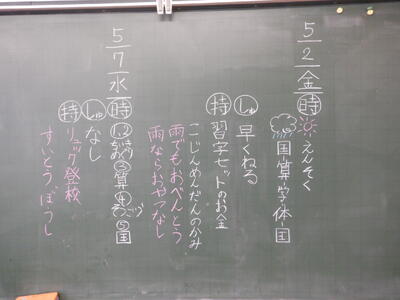 5/2金
時 えんそく
国・算・学・体・国
しゅ 早くねる
持 習字セットのお金
こじんめんだんのかみ
雨でもおべんとう
雨ならおやつなし
5/7水
時 ③算④⑤国
しゅ なし
持 リュック登校
すいとう、ぼうし